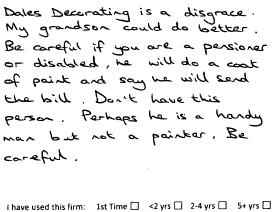 Dales Decorating is a disgrace.
My grandson could do better.
Be careful if you are a pensioner
or disabled, he will do a coat
of paint and say he will send
the bill. Don't have this
person. Perhaps he is a handy
man but not a painter. Be
careful.
I have used this firm: 1st Time ☐ <2 yrs ☐ 2-4 yrs ☐ 5+ yrs ☐